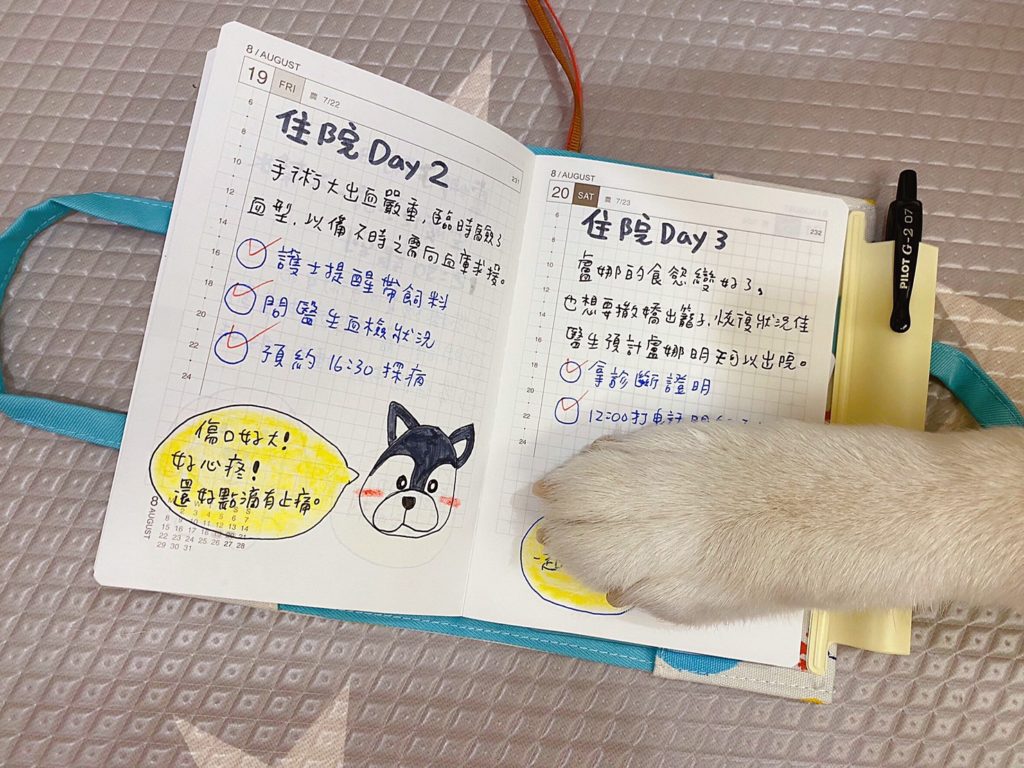 8 / AUGUST
19 FRI 農 7/22
231
住院Day 2
手術大出血嚴重,臨時驗了
血型,以備不時之需向血庫求援。
護士提醒帶飼料
問醫生血檢狀況
預約 16:30 探病
6
8
10
12
14
16
18
20
22
24
傷口好大!
好心疼!
還好點滴有止痛。
8 AUGUST
8 / AUGUST
20 SAT 農 7/23
232
住院Day 3
盧娜的食慾變好了,
也想要撒嬌出籠子,恢復狀況佳
醫生預計盧娜明天可以出院。
拿診斷證明
12:00打電話
6
8
10
12
14
16
18
20
22
24
PILOT G-2 07